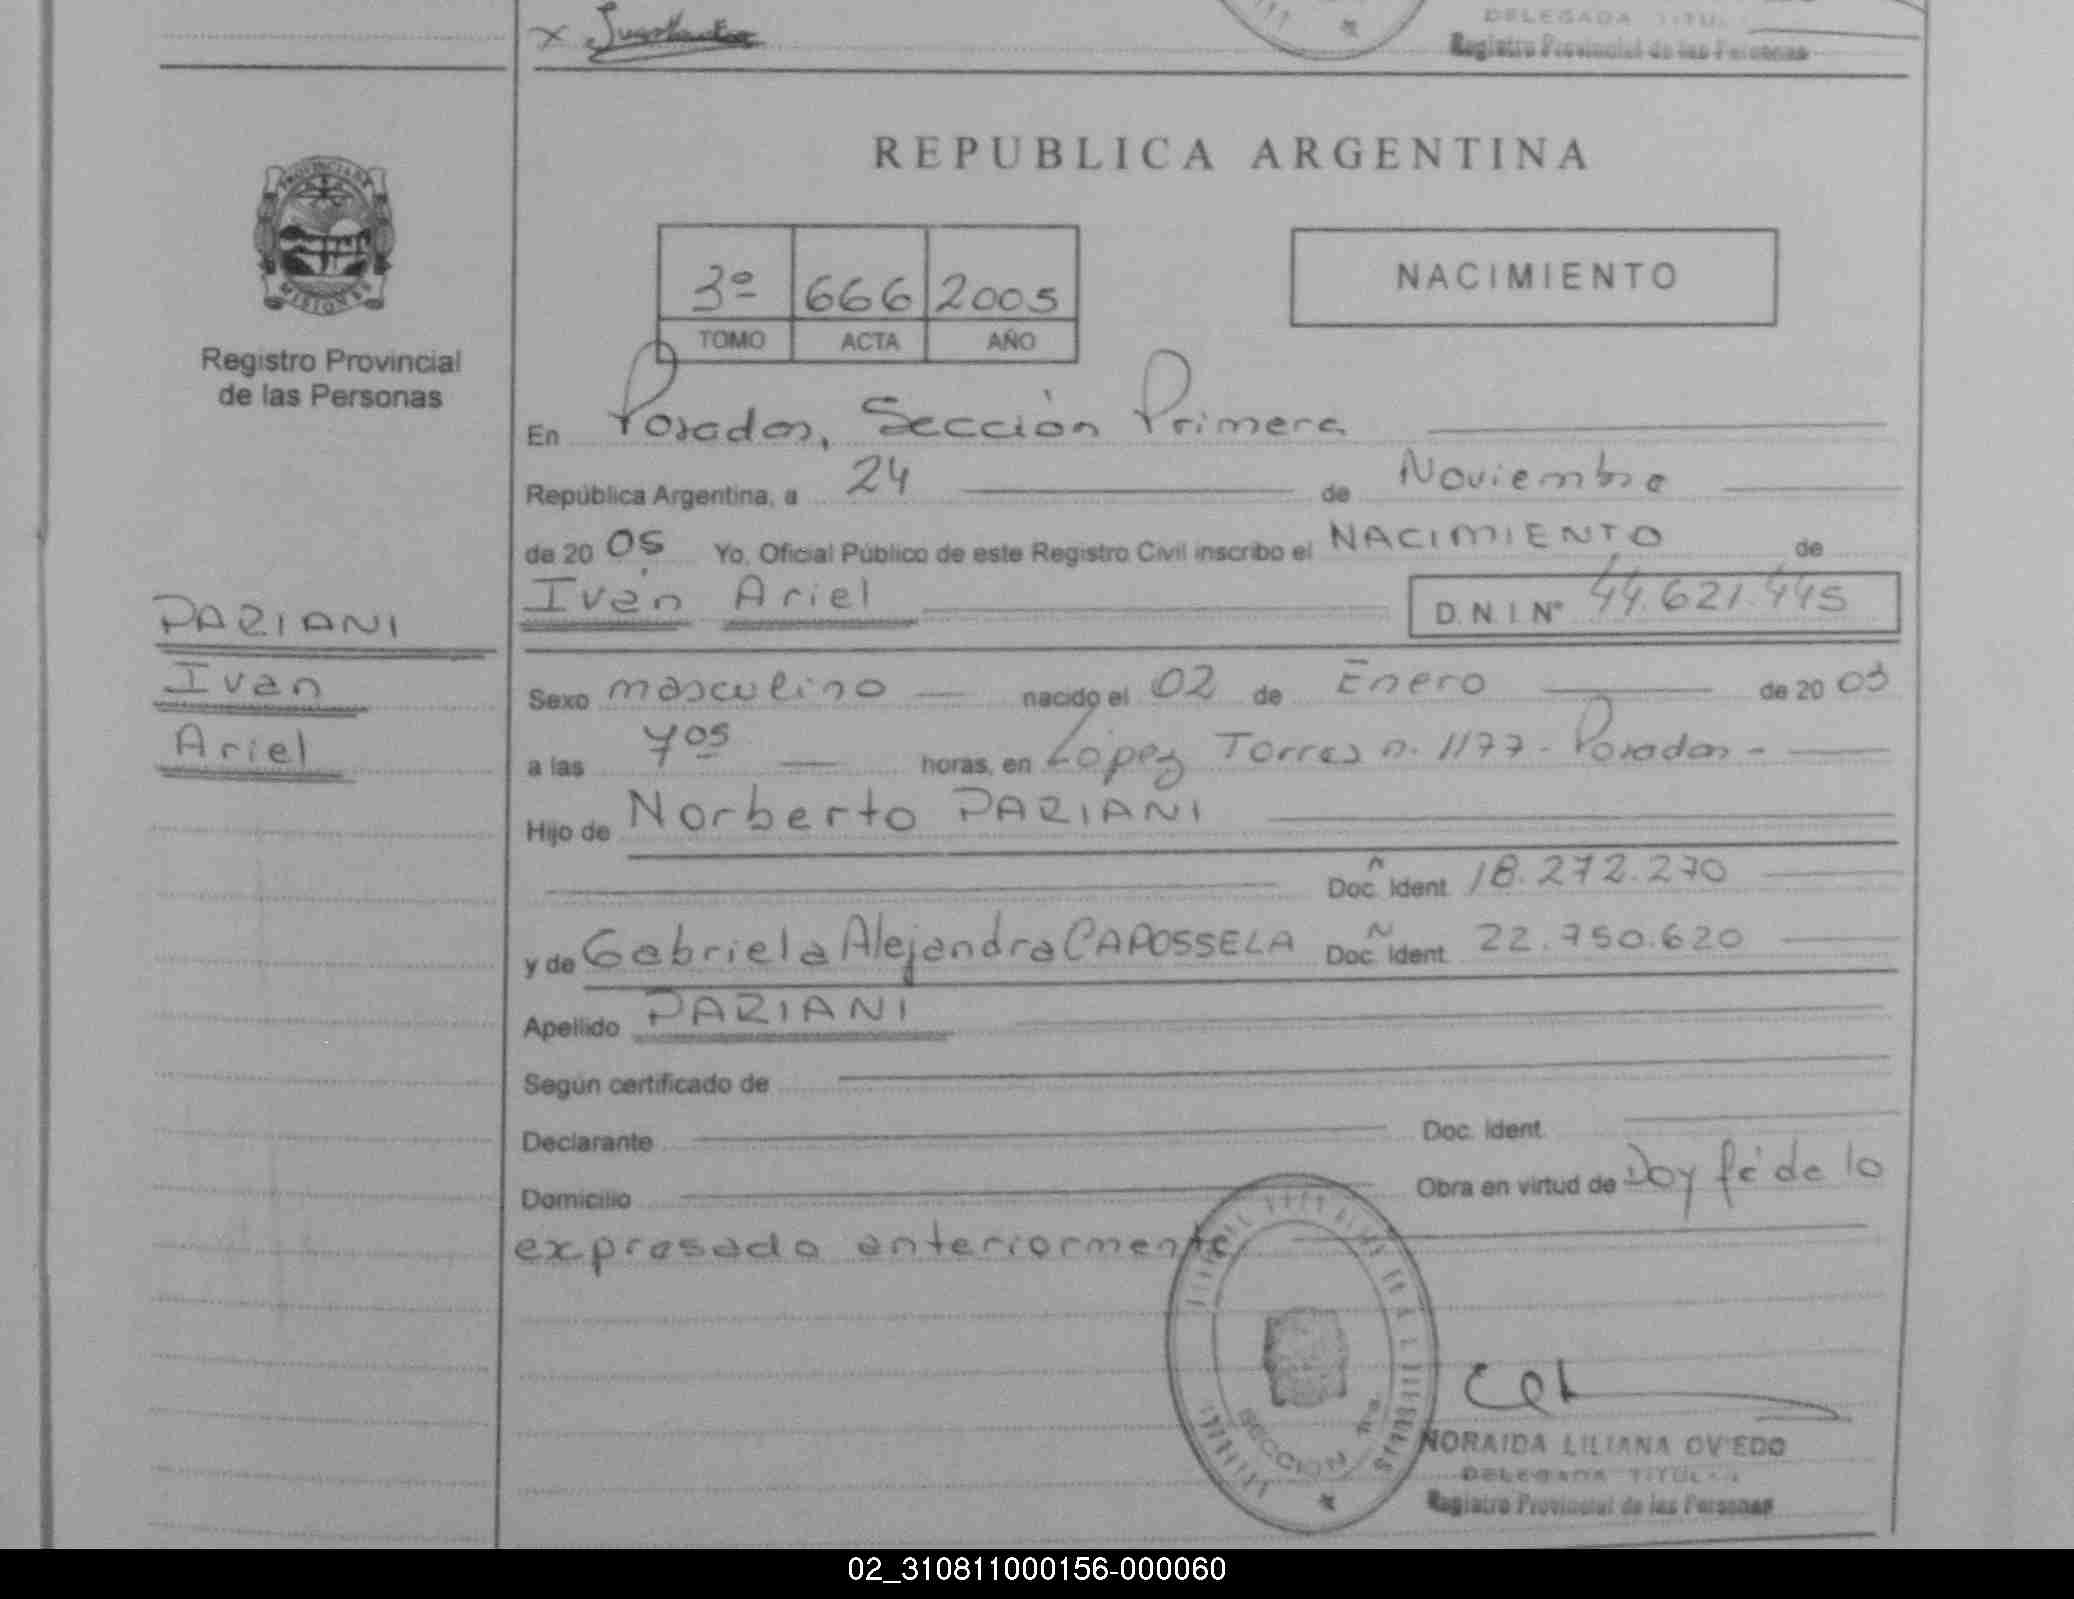 DELEGADA TITU
Registro Provincial de las Personas
PROVINCIA DE
MISIONES
Registro Provincial
de las Personas
PARIANI
Iván
Ariel
REPUBLICA ARGENTINA
3º 666 2005
TOMO ACTA AÑO
NACIMIENTO
En Posadas, Sección Primera
República Argentina, a 24 de Noviembre
de 20 05 Yo, Oficial Público de este Registro Civil inscribo el NACIMIENTO de
Iván Ariel D.N.I.Nº 44.621.445
Sexo masculino nacido el 02 de Enero de 20 03
a las 7os horas, en López Torres n. 1177 - Posadas -
Hijo de Norberto PARIANI
Doc. Ident. 18.272.270
y de Gabriela Alejandra CAPOSSELA Doc. Ident. 22.750.620
Apellido PARIANI
Según certificado de
Declarante Doc. Ident.
Domicilio Obra en virtud de Doy fé de lo
expresado anteriormente
SECCION
NORAIDA LILIANA OVIEDO
DELEGADA TITULAR
Registro Provincial de las Personas
02_310811000156-000060